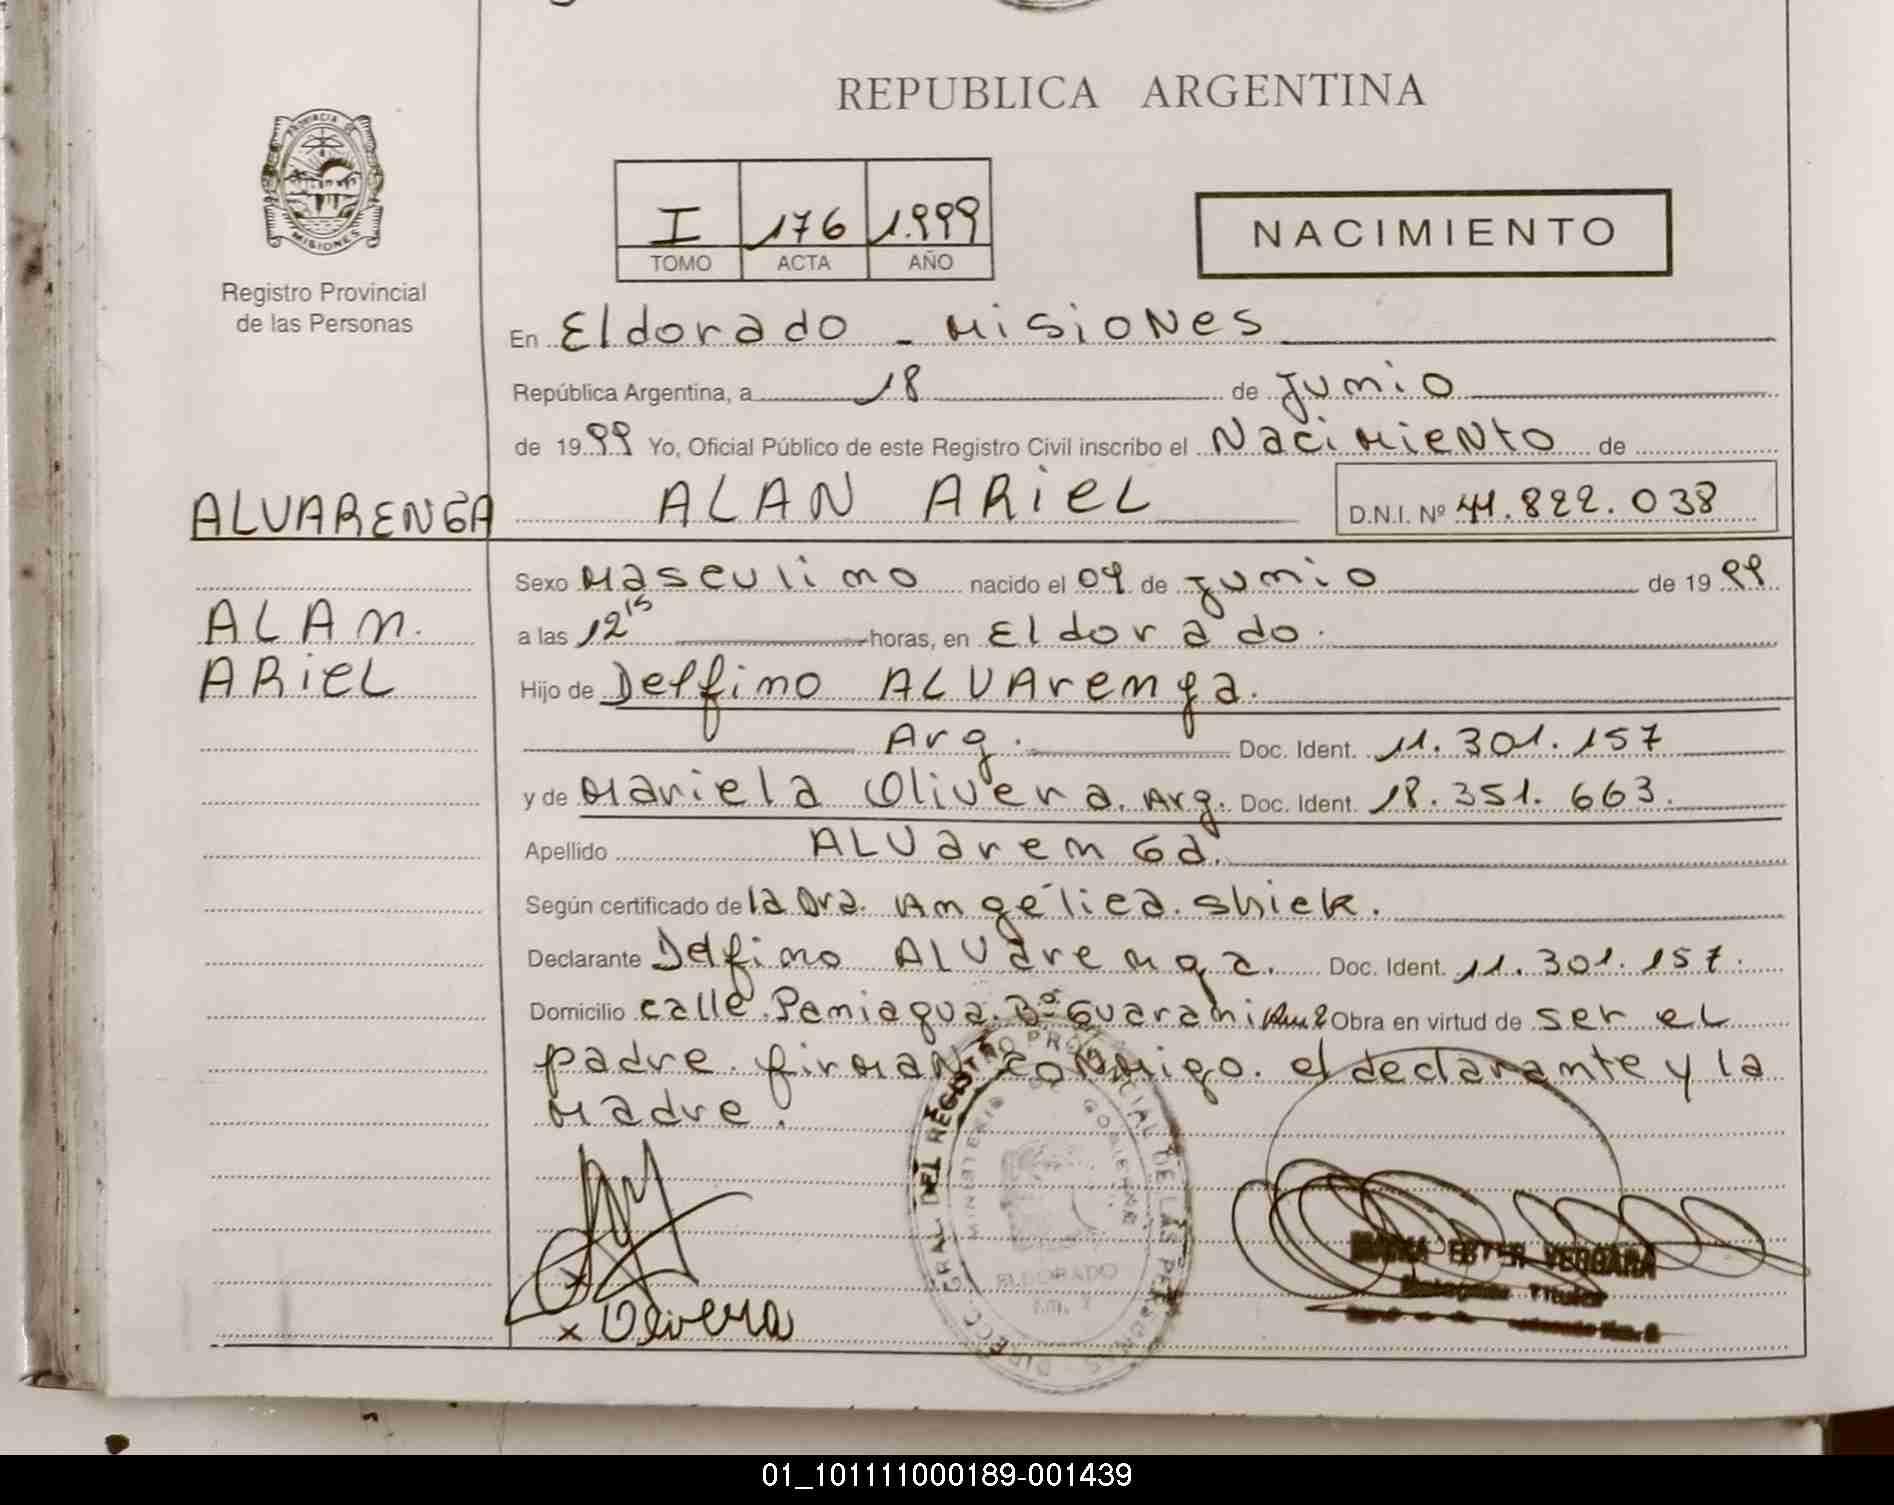 REPUBLICA ARGENTINA
PROVINCIA DE
MISIONES
Registro Provincial
de las Personas
I 176 1.999
TOMO ACTA AÑO
NACIMIENTO
En Eldorado - Misiones
República Argentina, a 18 de Junio
de 1999 Yo, Oficial Público de este Registro Civil inscribo el Nacimiento de
ALVARENGA ALAN ARIEL D.N.I. Nº 41.822.038
Sexo Masculino nacido el 09 de Junio de 1999
ALAN.
a las 12 15 horas, en Eldorado.
ARIEL
Hijo de Delfino ALVArenga.
Arg. Doc. Ident. 11.301.157
y de Mariela Olivera. Arg. Doc. Ident. 18.351.663.
Apellido ALVarenGa.
Según certificado de la Dra. Angélica. Shiek.
Declarante Delfino ALVarenga. Doc. Ident. 11.301.157.
Domicilio calle Paniagua. Bº Guarani Obra en virtud de ser el
padre. firman conmigo. el declarante y la
madre.
DIRECC. GRAL. DEL REGISTRO PROVINCIAL DE LAS PERSONAS
MINISTERIO DE GOBIERNO
ELDORADO
x
x Olivera
MARIA ESTER VERGARA
Titular
01_101111000189-001439